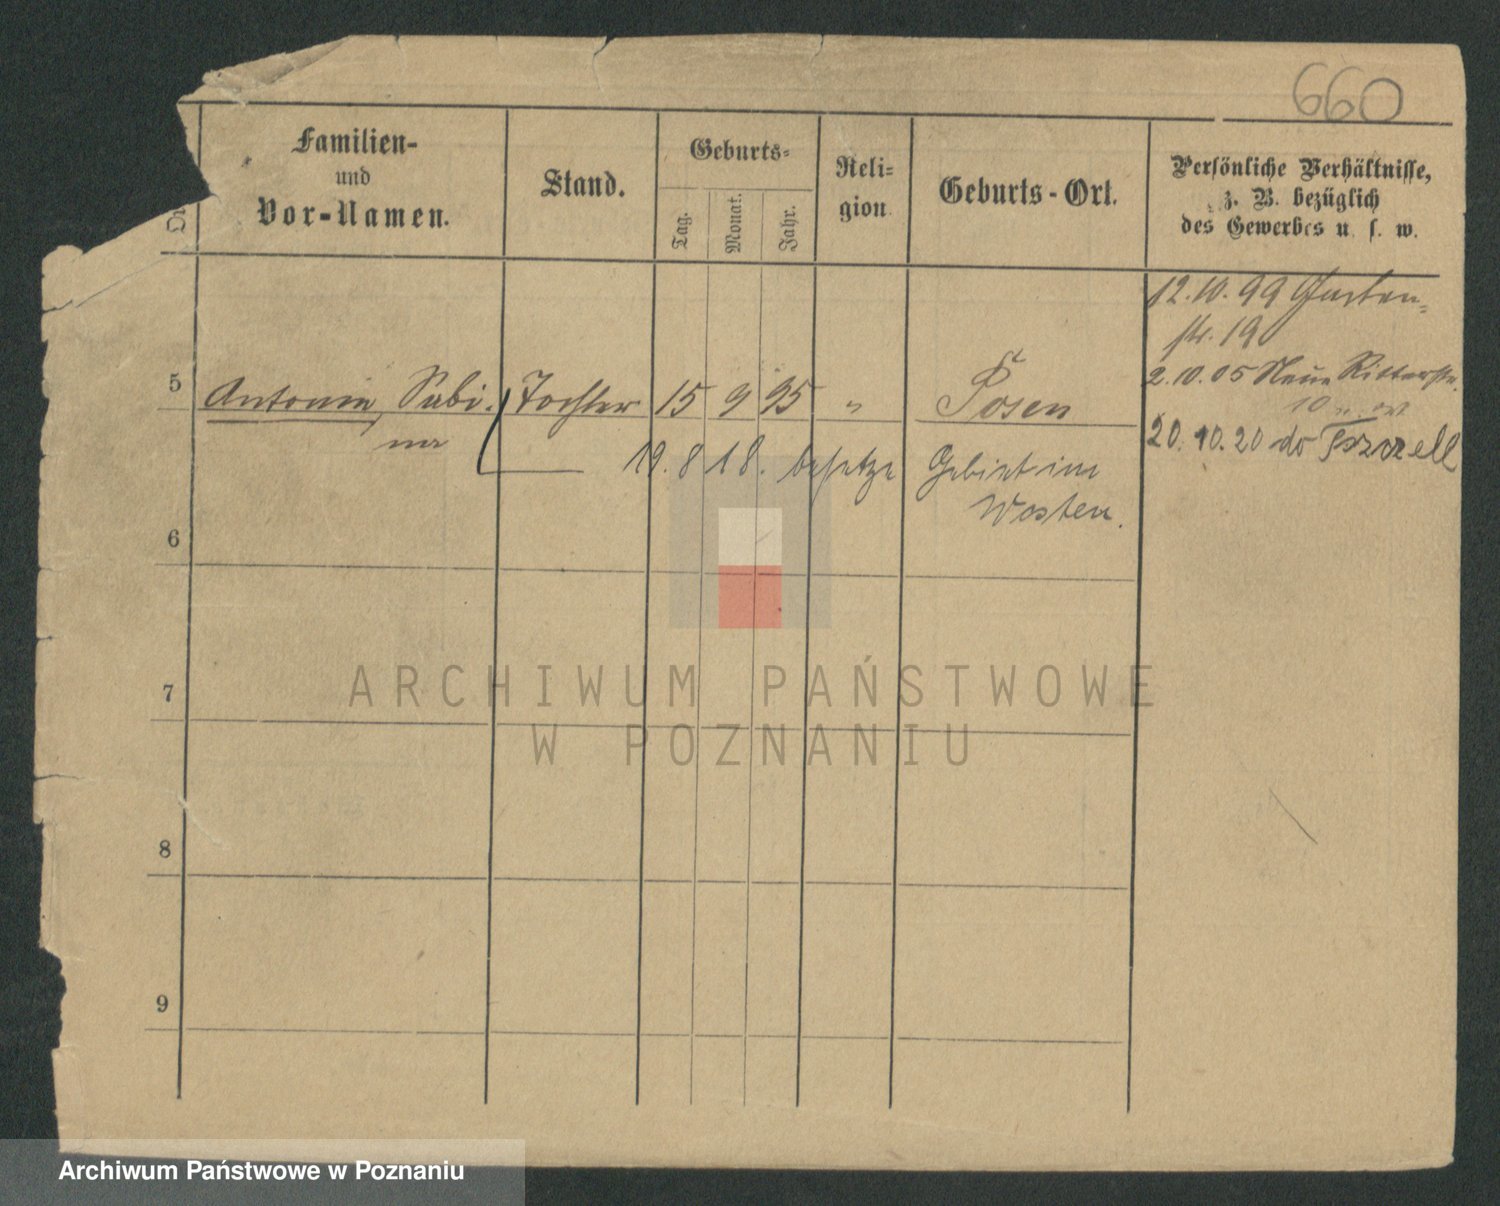 660
Familien-
und
Vor-Namen.
Stand.
Geburts-
Tag.
Monat.
Jahr.
Reli-
gion
Geburts-Ort.
Persönliche Verhältnisse,
z. B. bezüglich
des Gewerbes u. s. w.
12.10.99 Garten-
str. 19
5 Antonia, Sabi- Tochter 15 9 95 " Posen
na
2.10.05 Neue Ritterstr.
10
20.10.20 do
19.8.18. besetzte Gebiet im
Westen.
6
7
8
9
ARCHIWUM PAŃSTWOWE
W POZNANIU
Archiwum Państwowe w Poznaniu